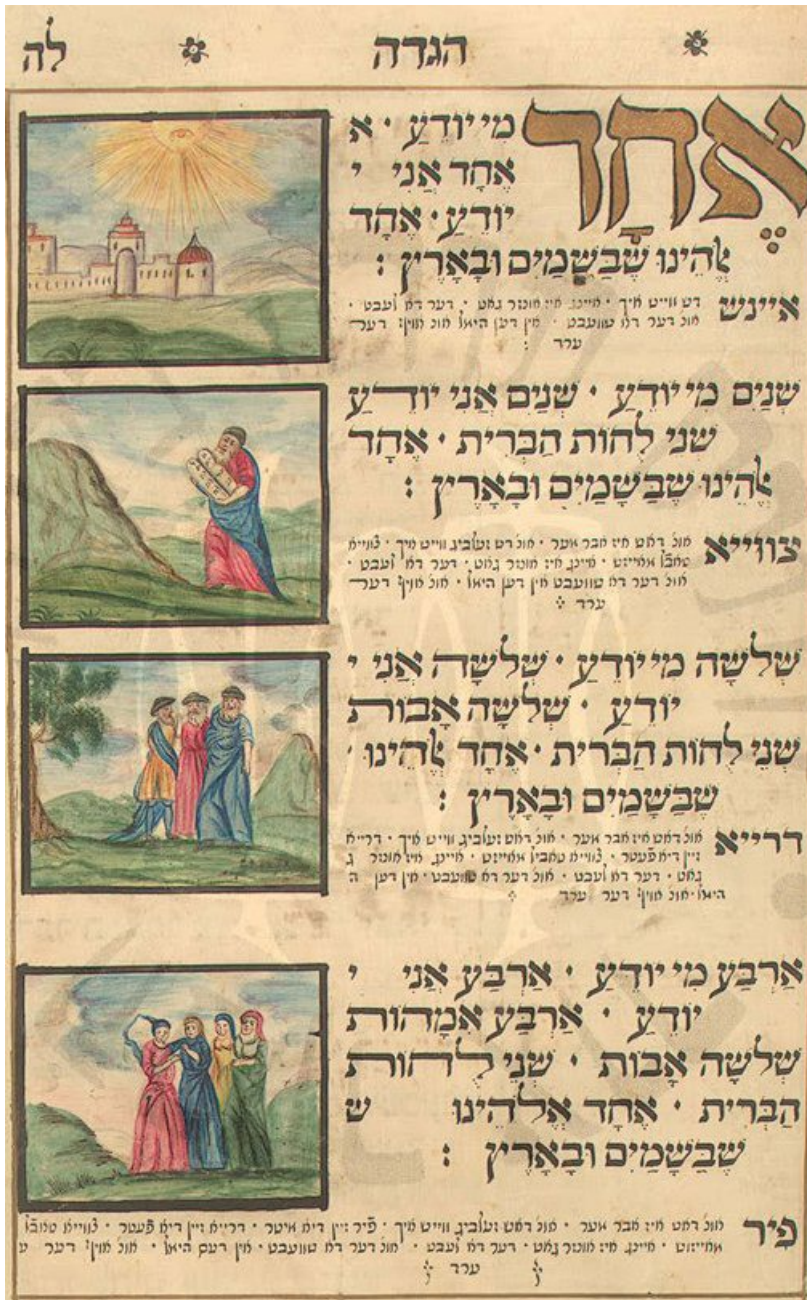 הגדה לה
אֶחָד מִי יוֹדֵעַ · א
אֶחָד אֲנִי י
יוֹדֵעַ · אֶחָד
אֱלֹהֵינוּ שֶׁבַּשָּׁמַיִם וּבָאָרֶץ :
איינש דש ווייש איך · איינר איז אונזר גאט · דער דא לעבט ·
אונ דער דא שוועבט · אין דען הימל אונ אויף דער
ערד :
שְׁנַיִם מִי יוֹדֵעַ · שְׁנַיִם אֲנִי יוֹדֵעַ
שני לֻחוֹת הַבְּרִית · אֶחָד
אֱלֹהֵינוּ שֶׁבַּשָּׁמַיִם וּבָאָרֶץ :
צווייא אונ דאש איז אבר מער · אונ דש זעלביג ווייש איך · צווייא
איינר איז אונזר גאט · דער דא לעבט ·
אונ דער דא שוועבט אין דען הימל · אונ אויף דער
ערד
שְׁלשָׁה מִי יוֹדֵעַ · שְׁלשָׁה אֲנִי י
יוֹדֵעַ · שְׁלשָׁה אָבוֹת
שְׁנֵי לֻחוֹת הַבְּרִית · אֶחָד אֱלֹהֵינוּ
שֶׁבַּשָּׁמַיִם וּבָאָרֶץ :
דרייא אונ דאש איז אבר מער · אונ דאש זעלביג ווייש איך · דרייא
זיין דיא פֿעטר · צווייא איינר איז אונזר ג
גאט · דער דא לעבט · אונ דער דא שוועבט · אין דען ה
הימל · אונ אויף דער ערד
אַרְבַּע מִי יוֹדֵעַ · אַרְבַּע אֲנִי י
יוֹדֵעַ · אַרְבַּע אִמָּהוֹת
שְׁלשָׁה אָבוֹת · שְׁנֵי לֻחוֹת
הַבְּרִית · אֶחָד אֱלֹהֵינוּ ש
שֶׁבַּשָּׁמַיִם וּבָאָרֶץ :
פיר אונ דאש איז אבר מער · אונ דאש זעלביג ווייש איך · פֿיר זיין דיא מיטר · דרייא זיין דיא פֿעטר · צווייא
איינר איז אונזר גאט · דער דא לעבט · אונ דער דא שוועבט · אין דעם הימל · אונ אויף דער ע
ערד